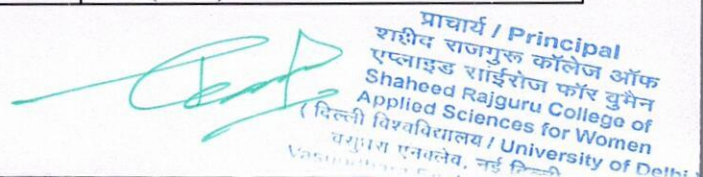 प्राचार्य / Principal
शहीद राजगुरू कॉलेज ऑफ
एप्लाइड साईंसेज फॉर वुमैन
Shaheed Rajguru College of
Applied Sciences for Women
( दिल्ली विश्वविद्यालय / University of Delhi )
वसुन्धरा एनक्लेव, नई दिल्ली